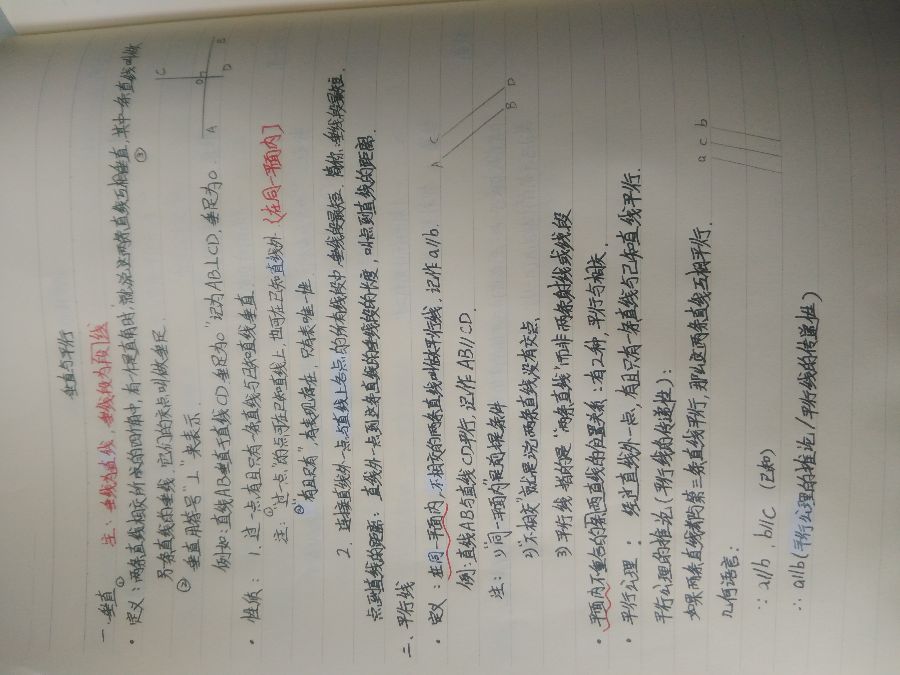 垂直与平行
一、垂直 注：垂线为直线，垂线段为段|线
· 定义：①两条直线相交所成的四个角中，有一个是直角时，就说这两条直线互相垂直，其中一条直线叫做③
另一条直线的垂线，它们的交点叫做垂足.
② 垂直用符号“⊥”来表示.
例如“直线AB垂直于直线CD，垂足为O”记为AB⊥CD，垂足为O.
C
O
A
B
D
· 性质：1. 过一点有且只有一条直线与已知直线垂直 (在同一平面内]
注：①“过一点”的点可在已知直线上，也可在已知直线外.
②“有且只有”有表现存在，只有表唯一性
2. 连接直线外一点与直线上各点的所有线段中，垂线段最短. 简称：垂线段最短.
点到直线的距离：直线外一点到这条直线的垂线段的长度，叫点到直线的距离.
二、平行线
· 定义：在同一平面内，不相交的两条直线叫做平行线，记作a//b.
例：直线AB与直线CD平行，记作 AB//CD
A B
C D
注：1)“同一平面内”是前提条件
2)“不相交”就是说两条直线没有交点.
3) 平行线指的是“两条直线”而非两条射线或线段
· 平面内不重合的两条直线的位置关系：有2种，平行与相交
· 平行公理：经过直线外一点，有且只有一条直线与已知直线平行.
平行公理的推论(平行线的传递性)：
如果两条直线都与第三条直线平行，那么这两条直线互相平行.
a c b
几何语言：
∵ a//b，b//c (已知)
∴ a//b (平行公理的推论/平行线的传递性)